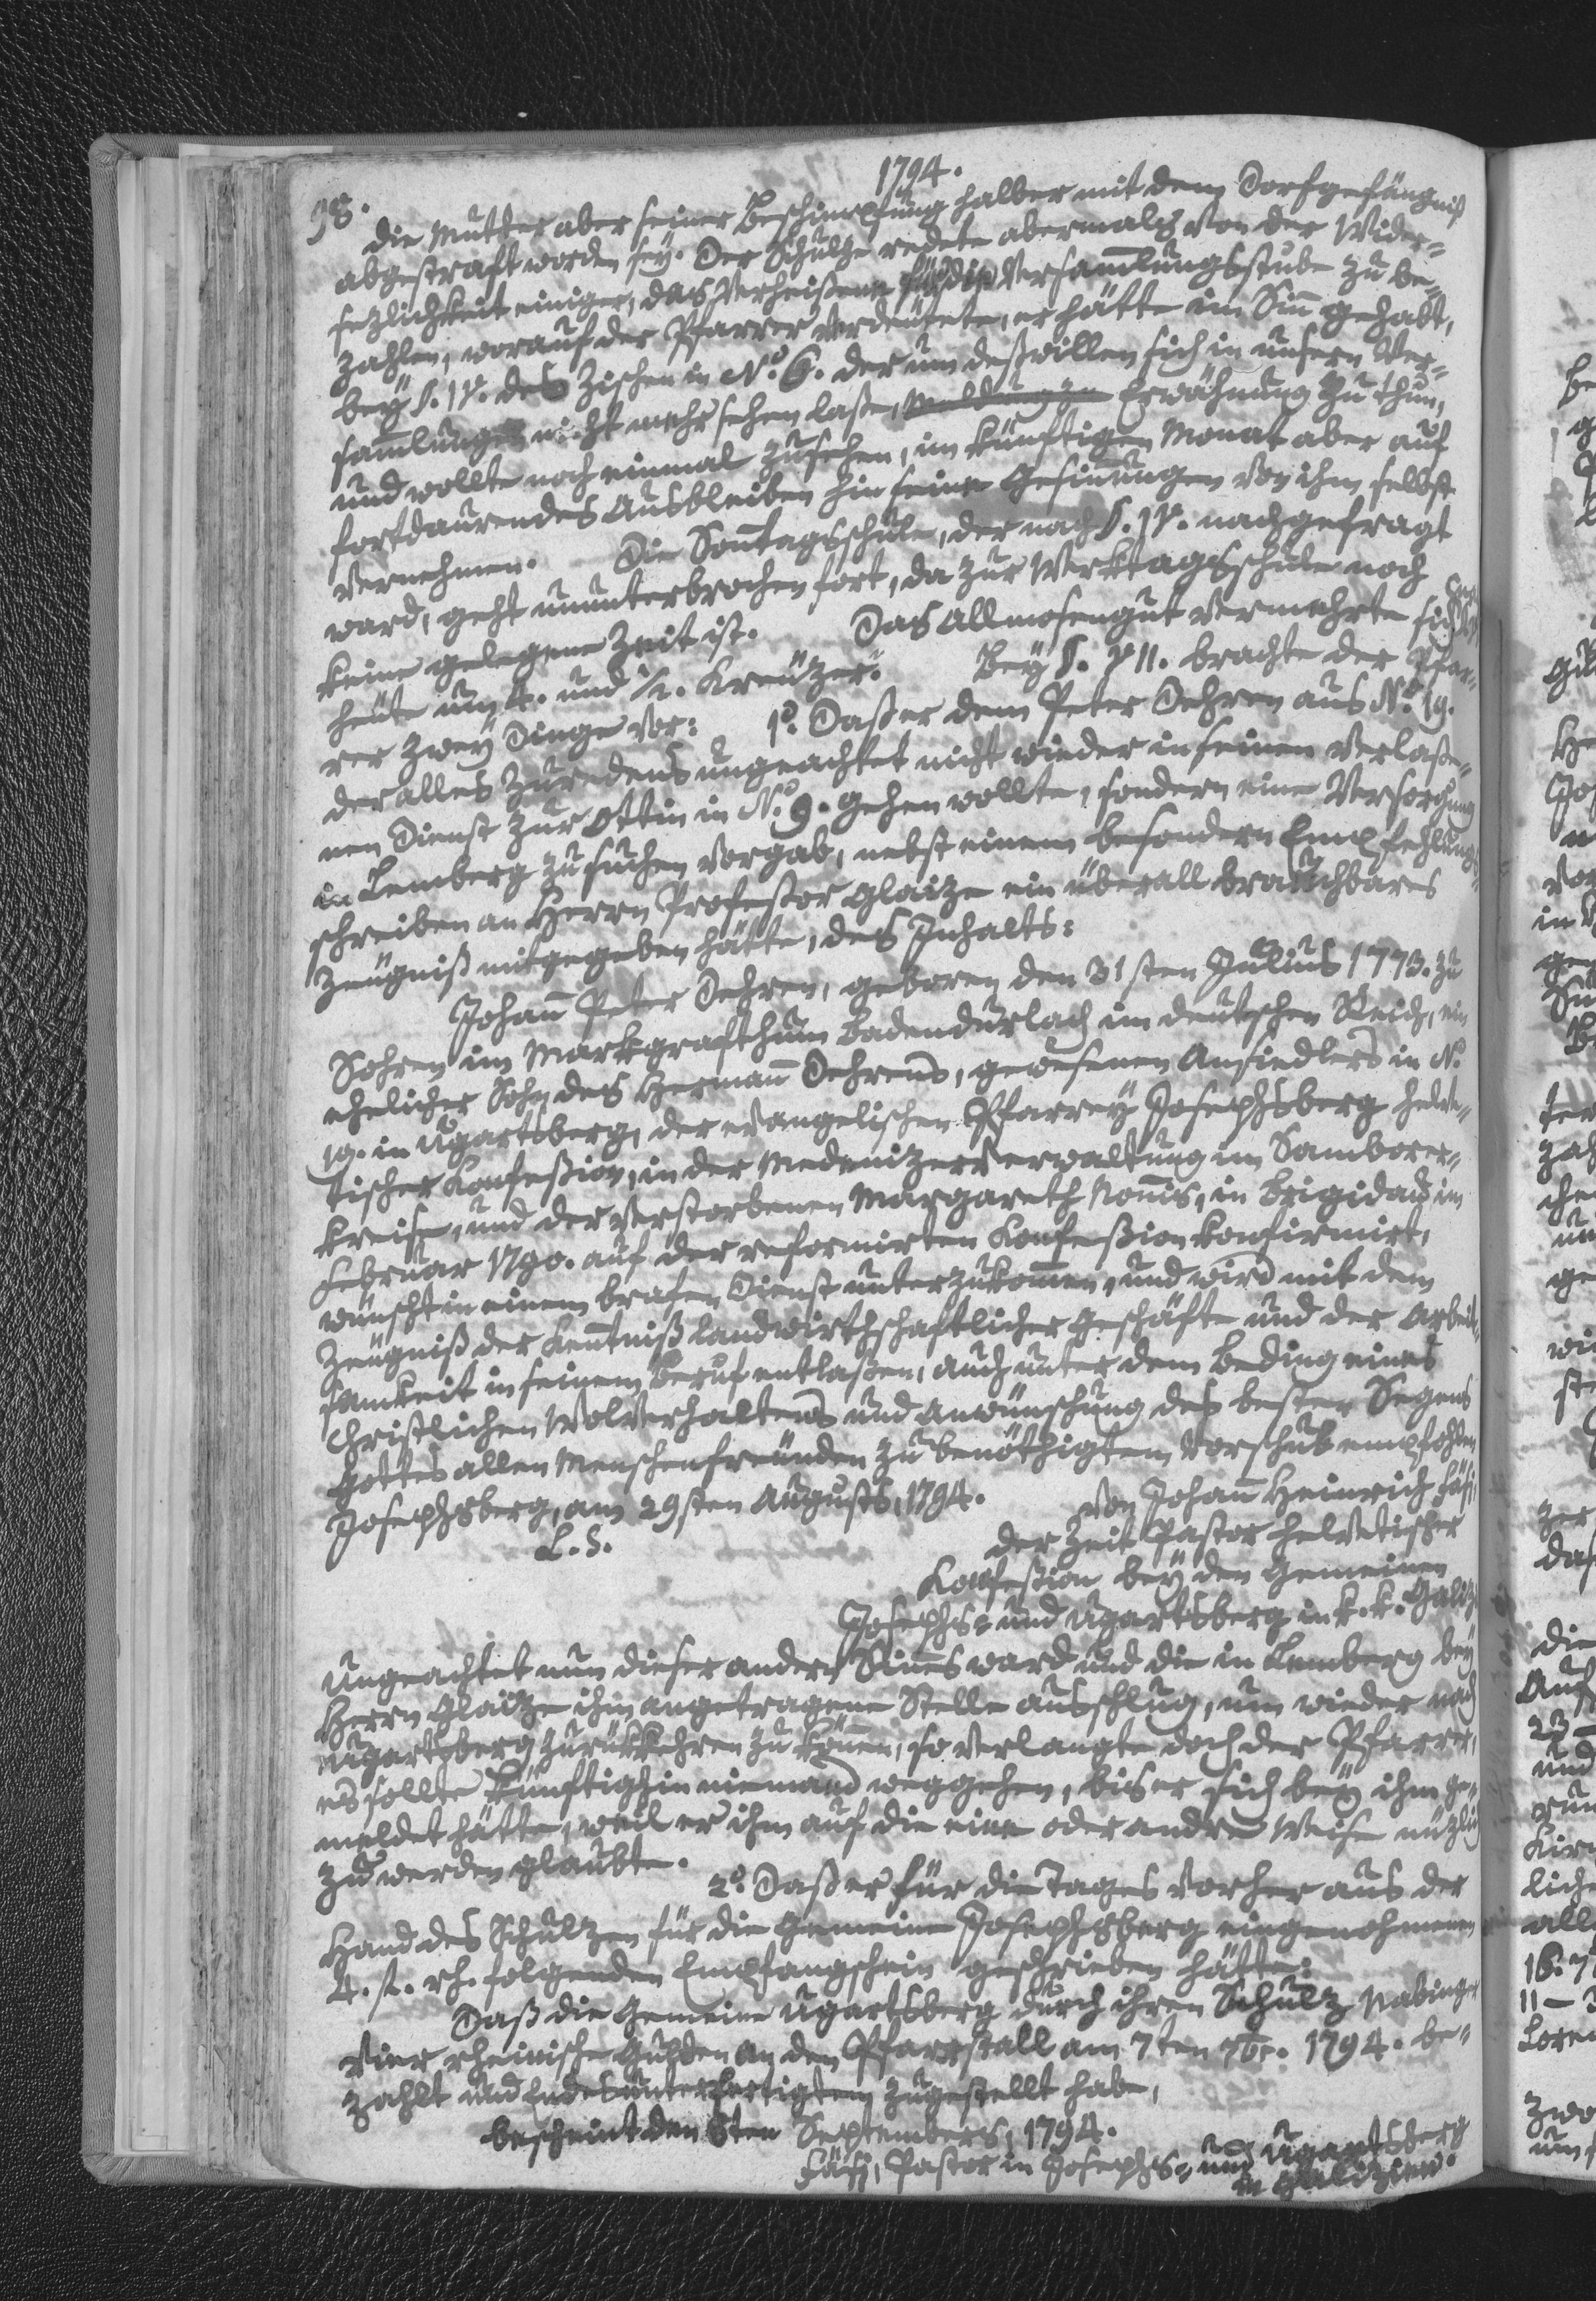 98. 1794.
die Mutter aber seiner Beschimpfung halber mit dem Dorfgefängniß
abgestraft worden sey. Der Schulze redete abermals von der Wider-
sezlichkeit einiger, das Verheißene für die Versam̄lungsstube zu be-
zahlen, worauf der Pfarrer verdeutete, er hätte im Sin̄ gehabt,
bey §. IV. des Zischen in No. 6. der um deßwillen sich in unsern Ver-
sam̄lungen nicht mehr sehen laße, Meldung zu Erwähnung zu thun,
und wollte noch einmal zusehen, im künftigen Monat aber auf
fortdaurendes Ausbleiben hin seine Gesinnungen von ihm selbst
vernehmen. Die Son̄tagsschule, der nach §. IV. nachgefragt
ward, geht ununterbrochen fort, da zur Werktagsschule noch
keine gelegene Zeit ist. Das Allmosengut vermehrte sich
heute um 4. und ½. Kreuzer. Bey §. VII. brachte der Pfar-
rer zwey Dinge vor: 1o. Daß er dem Peter Dehren aus No. 19.
der alles Zuredens ungeachtet nicht wieder in seinen verlaße-
nen Dienst zur Ottin in No. 9. gehen wollte, sondern eine Versorgung
in Lemberg zu suchen vorgab, nebst einem besondern Empfehlungs-
schreiben an Herrn Profeßor Glaize ein überall brauchbares
Zeugniß mitgegeben hätte, des Inhalts:
Johan̄ Peter Dehren, geboren den 31sten Julius 1773. zu
Sohren im Markgrafthum Badendurlach im deutschen Reich, ein
ehelicher Sohn des Herman̄ Dehrens, gewesenen Ansiedlers in No.
19. in Ugartsberg, der evangelischen Pfarrey Josephsberg helve-
tischer Konfeßion, in der Medenizerverwaltung im Samborer-
kreise, und der verstorbenen Margareth Non̄is, in Brigidau im
Februar 1790. auf der reformirten Konfeßion konfirmirt,
wünscht in einem brafen Dienst unterzukom̄en, und wird mit dem
Zeugniß der Ken̄tniß landwirthschaftlicher Geschäfte und der Arbeit-
samkeit in seinem Beruf entlaßen, auch unter dem Beding eines
christlichen Wolverhaltens und Anwünschung des besten Segens
Gottes allen Menschenfreunden zu benöthigtem Vorschub empfohlen
Josephsberg, am 29sten Augusts, 1794. von Johan̄ Heinrich Fäsi,
L. S. der Zeit Pastor helvetischer
Konfeßion bey den Gemeinen
Josephs- und Ugartsberg in k. k. Galiz.
Ungeachtet nun dieser andern Sin̄es ward und die in Lemberg bey
Herrn Glaize ihm angetragene Stelle ausschlug, um wieder nach
Ugartsberg zurükkehren zu kön̄en, so verlangte doch der Pfarrer,
es sollte künftighin niemand weggehen, bis er sich bey ihm ge-
meldet hätte, weil er ihm auf die eine oder andre Weise nüzlich
zu werden glaubte. 2o. Daß er für die Tages vorher aus der
Hand des Schulzen für die Gemeine Josephsberg eingenohmenen
4. fl. rh. folgenden Empfangschein geschrieben hätte:
Daß die Gemeine Ugartsberg durch ihren Schulz Nabinger
vier rheinische Gulden an den Pfarrstall am 7ten 7br. 1794. be-
zahlt und Endesunterfertigtem zugestellt habe,
bescheint den 8ten Septembers, 1794.
Fäsi, Pastor in Josephs- und Ugartsberg
in Galizien.